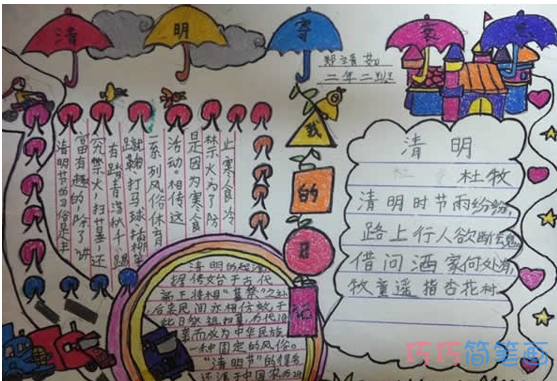 清明寄哀思
二年二班
我的日记
清明节的习俗是丰
富有趣的,除了讲
究禁火、扫墓,还
有踏青荡秋千、踢
蹴鞠、打马球、插柳等
一系列风俗体育
活动。相传这
是因为寒食
禁火,为了防
止寒食冷
清明
杜牧
清明时节雨纷纷,
路上行人欲断魂。
借问酒家何处有,
牧童遥指杏花村。
清明的起源
据传始于古代
帝王将相“墓祭”之礼
后来民间亦相仿效,于
此日祭祖扫墓,历代沿
袭而成为中华民族
一种固定的风俗。
“清明节”的得名
还源于中国农历
巧巧简笔画